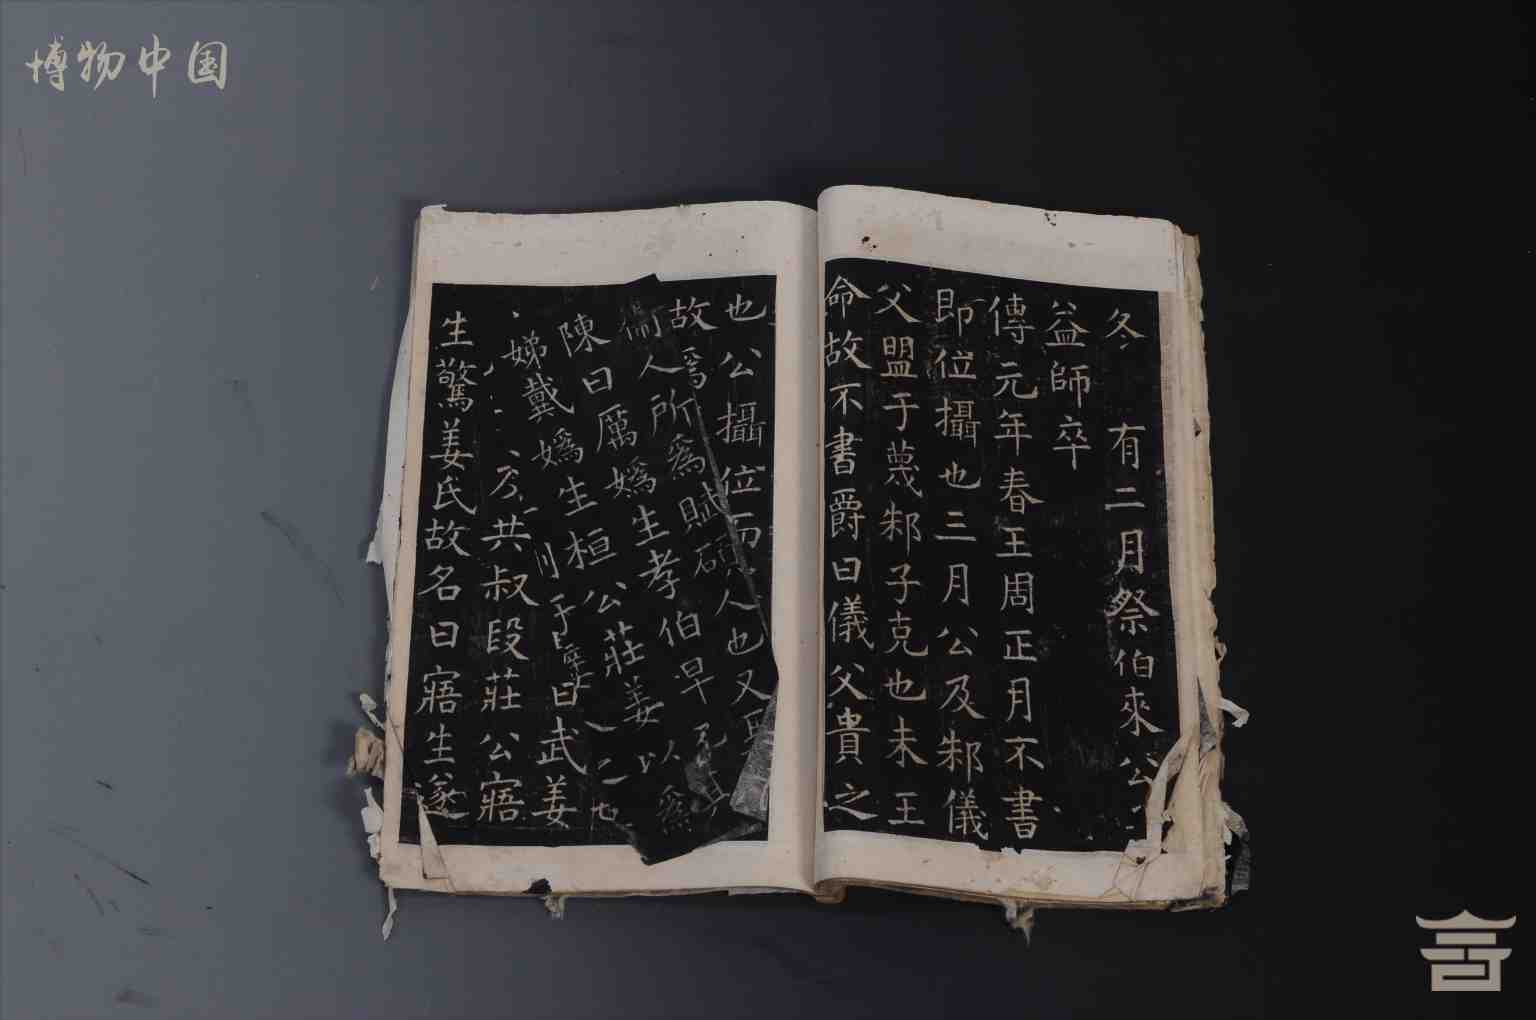 博物中国
冬有二月祭伯來公
益師卒
傳元年春王周正月不書
即位攝也三月公及邾儀
父盟于蔑邾子克也未王
命故不書爵曰儀父貴之
也公攝位而人也又
故爲所爲賦碩
人所爲
陳曰厲嬀生孝伯早
娣戴嬀生桓公莊姜以爲
共叔段莊公寤
曰武姜
生驚姜氏故名曰寤生遂